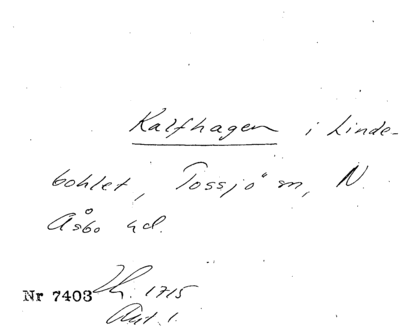 Kalfhagen i Linde-
bohlet, Tossjö sn, N.
Åsbo hd.
Nr 7403 Lh. 1715
Akt 1.